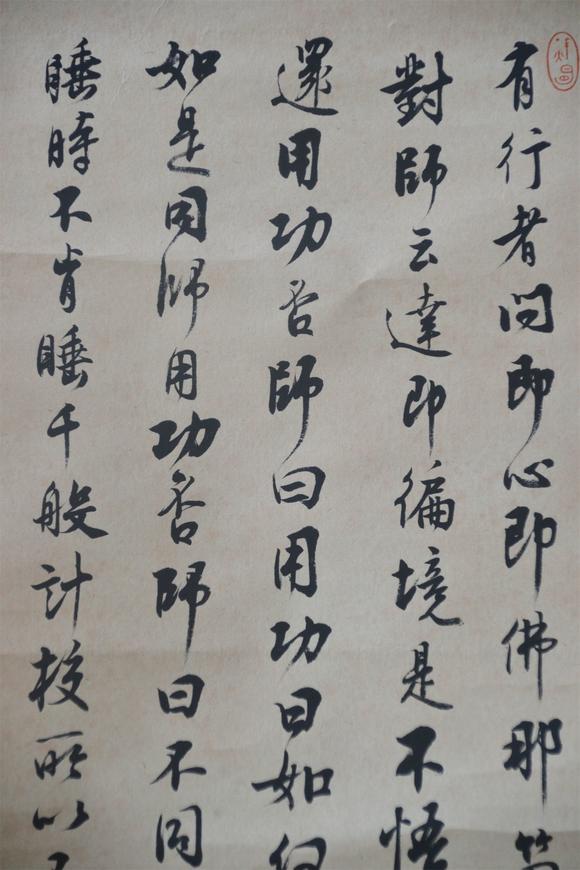 有行者問即心即佛那
對師云達即徧境是不悟
還用功否師曰用功曰如何
如是同師用功否師曰不同
睡時不肯睡千般計校所以